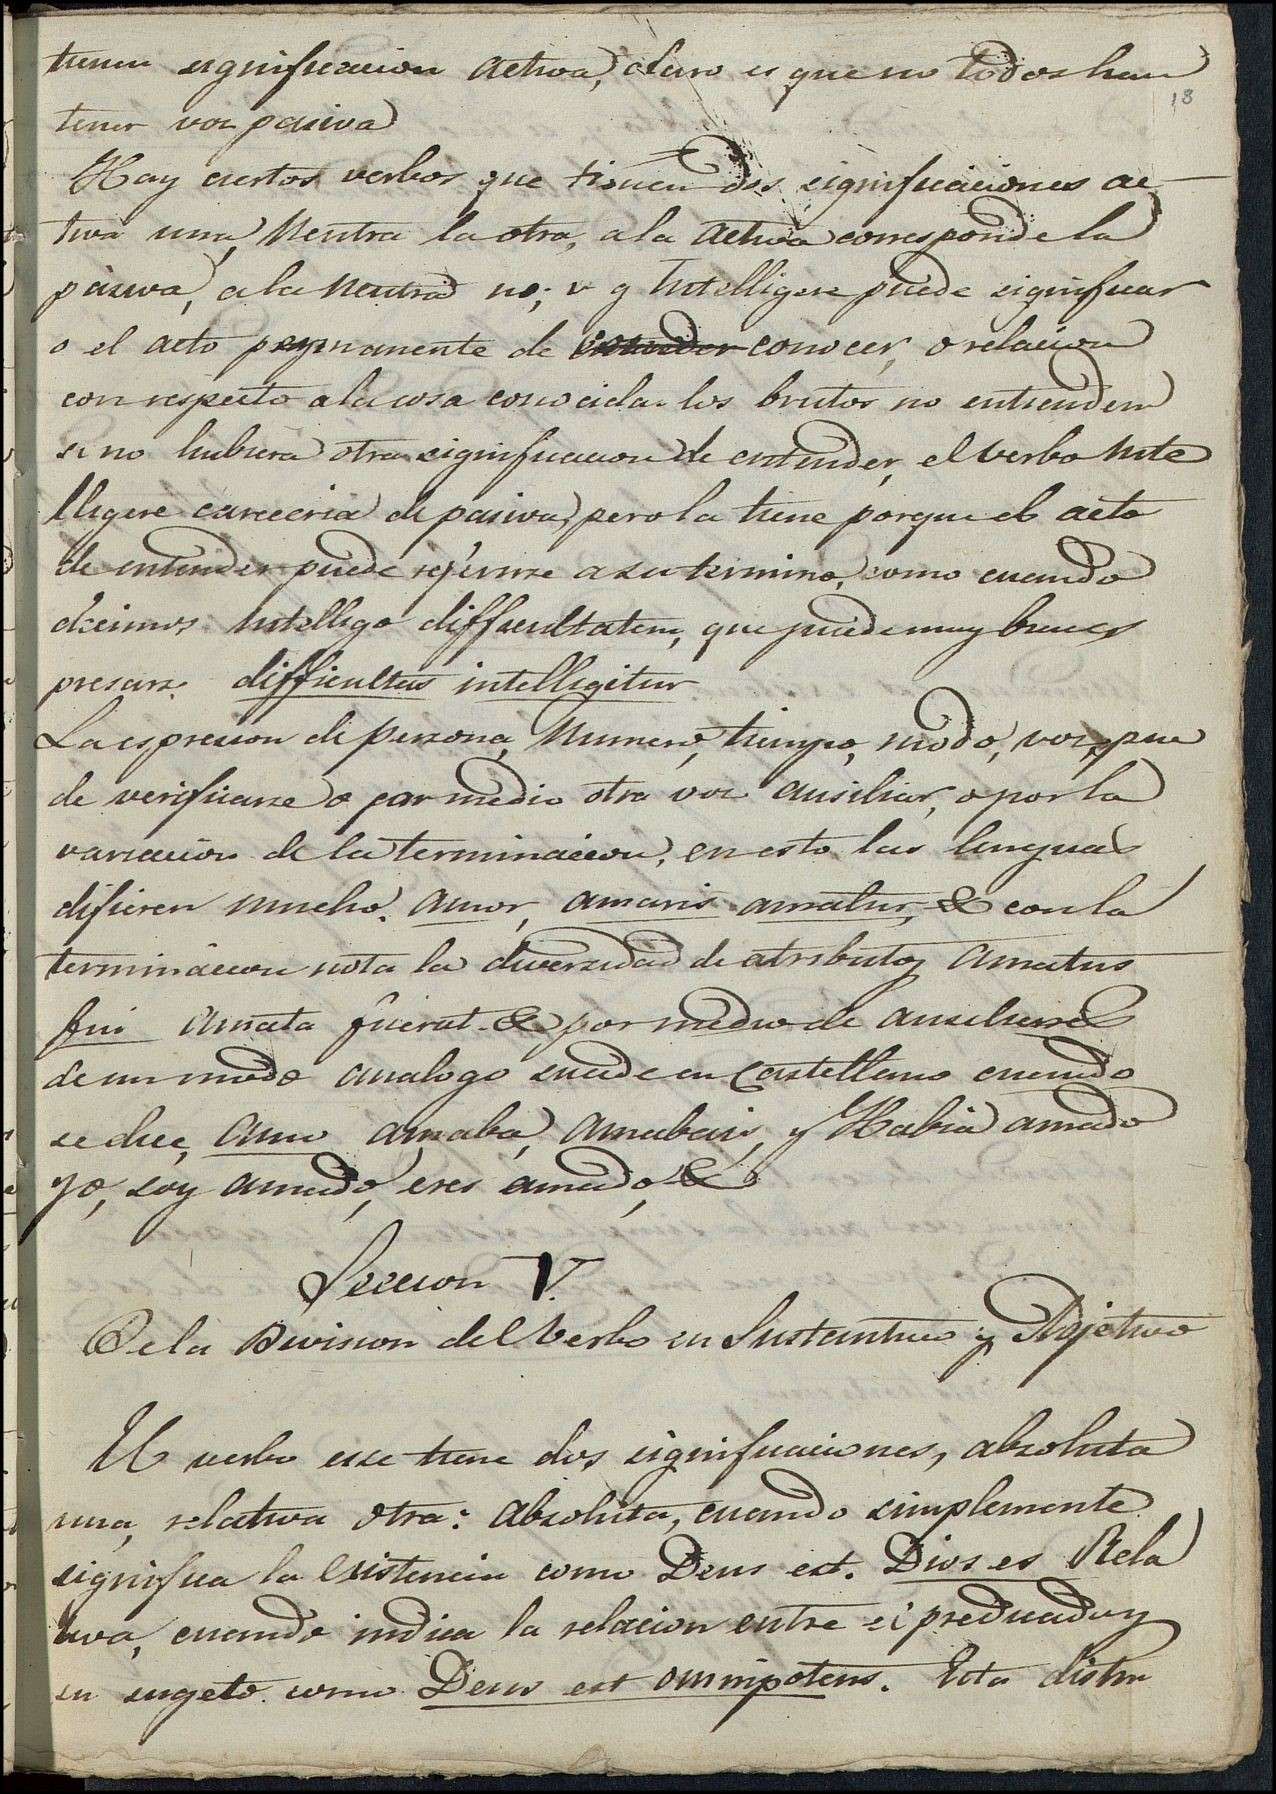 tienen significacion activa, claro es que no todos han
18
tener voz pasiva
Hay ciertos verbos que tienen dos significaciones ac-
tiva una, Neutra la otra, a la activa corresponde la
pasiva, a la neutra no; v g Intelligere puede significar
o el acto permanente de conocer, o relacion
con respecto a la cosa conocida. los brutos no entienden
si no hubiera otra significacion de entender, el verbo Inte
lligere careceria de pasiva, pero la tiene porque el acto
de entender puede referirse a su termino, como cuando
decimos Intelligo difficultatem, que puede muy bien es
presarse difficultas intelligitur
La espresion de persona, Numero, tiempo, modo, voz, pue
de verificarse o por medio otra voz ausiliar, o por la
variacion de la terminacion, en esto las lenguas
difieren mucho. amor, amaris amatur, & con la
terminacion nota la diversidad de atributos, amatus
fui amata fuerat & por medio de ausiliares
de un modo analogo sucede en Castellano cuando
se dice, amo amaba, amabais, y Habia amado
yo, soy amado, eres amado, &
Seccion V.
De la Division del Verbo en Sustantivo y Adjetivo
El verbo esse tiene dos significaciones, absoluta
una, relativa otra: absoluta, cuando simplemente
significa la existencia como Deus est. Dios es Rela
tiva, cuando indica la relacion entre el predicado y
su sugeto. como Deus est omnipotens. Esta distin